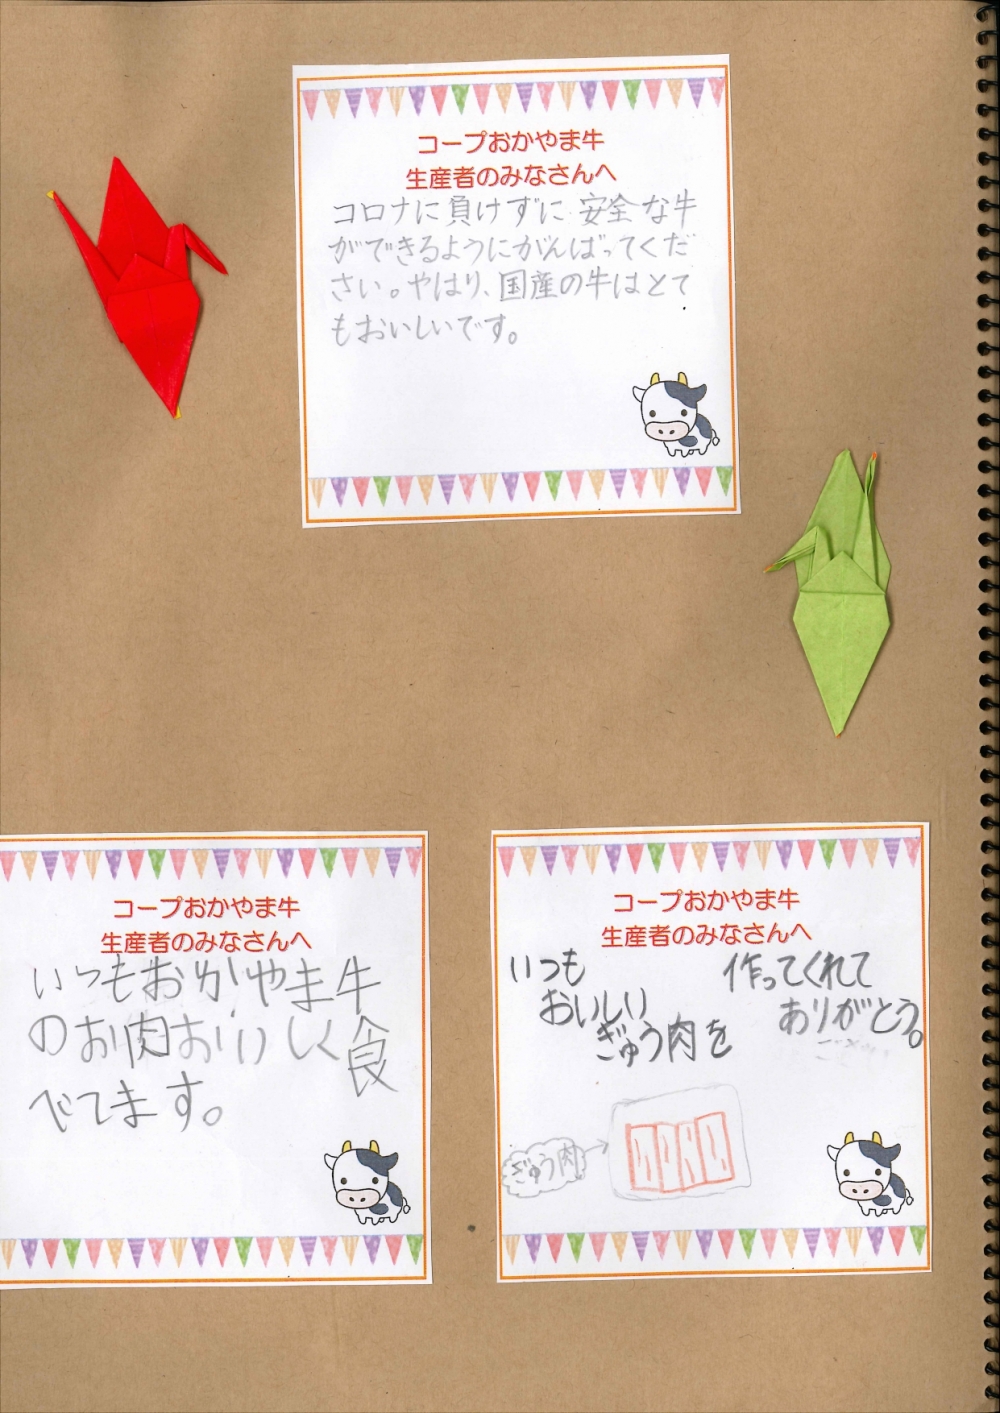 コープおかやま牛
生産者のみなさんへ
コロナに負けずに安全な牛
ができるようにがんばってくだ
さい。やはり、国産の牛はとて
もおいしいです。
コープおかやま牛
生産者のみなさんへ
いつもおかやま牛
のお肉おいしく食
べてます。
コープおかやま牛
生産者のみなさんへ
いつも
おいしい
ぎゅう肉を
作ってくれて
ありがとう。
ぎゅう肉